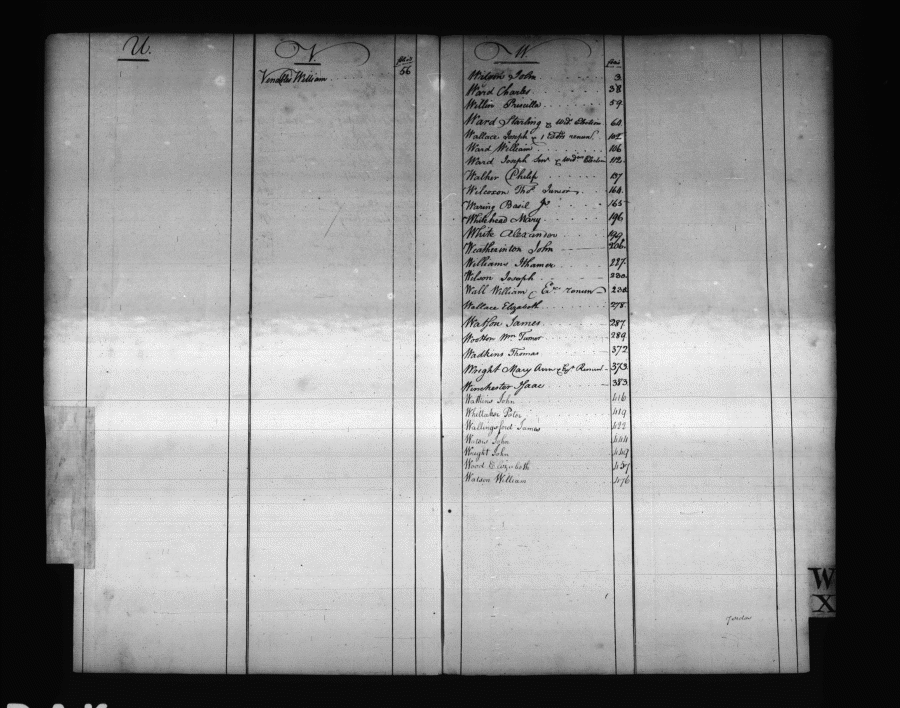 U.
V.
folio
Venables William 56
W.
folio
John 3
Ward Charles 38
Priscilla 59
Ward Starling & 64
Wallace Joseph & 102
Ward William 106
Ward Joseph Senr & 112
Walker Philip 137
Wilcoxon Thos Junior 164
Waring Basil Jr 165
Whitehead Mary 196
White Alexander 199
Weatherinton John 206
Williams Ithamer 227
Wilson Joseph 230
Wall William & 234
Wallace Elizabeth 278
Watson James 287
Wootton Wm Turnor 289
Wadkins Thomas 372
Wright Mary Ann & 373
Winchester Isaac 383
Watkins John 416
Whittaker Peter 419
Wallingsford James 422
John 444
Wright John 449
Wood Elizabeth 457
Watson William 476
W
X